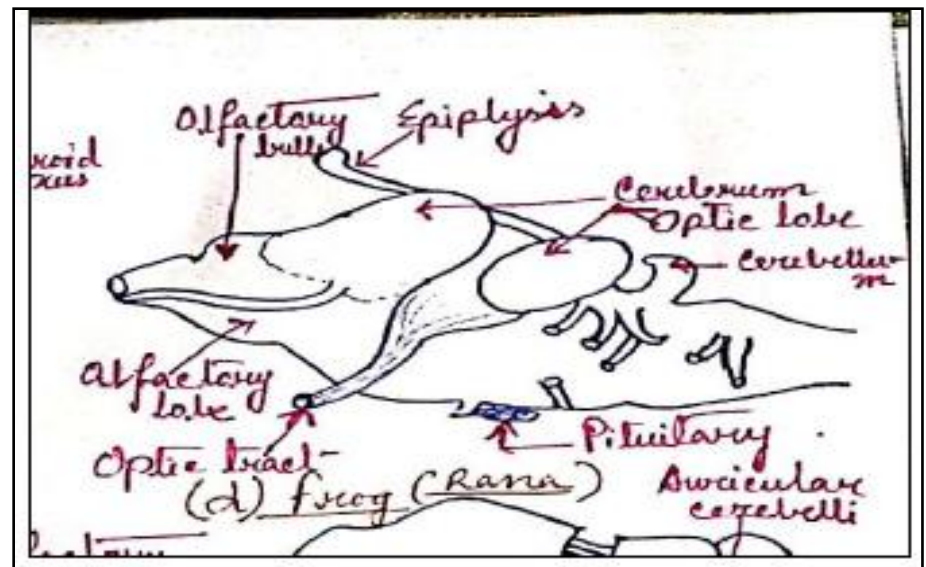 Olfactory
bulb
Epiplysis
roid
xus
Cerebrum
Optic lobe
Cerebellu-
m
Alfactory
lobe
Optic tract
Pituitary
(d) frog (Rana)
Auricular
cerebelli